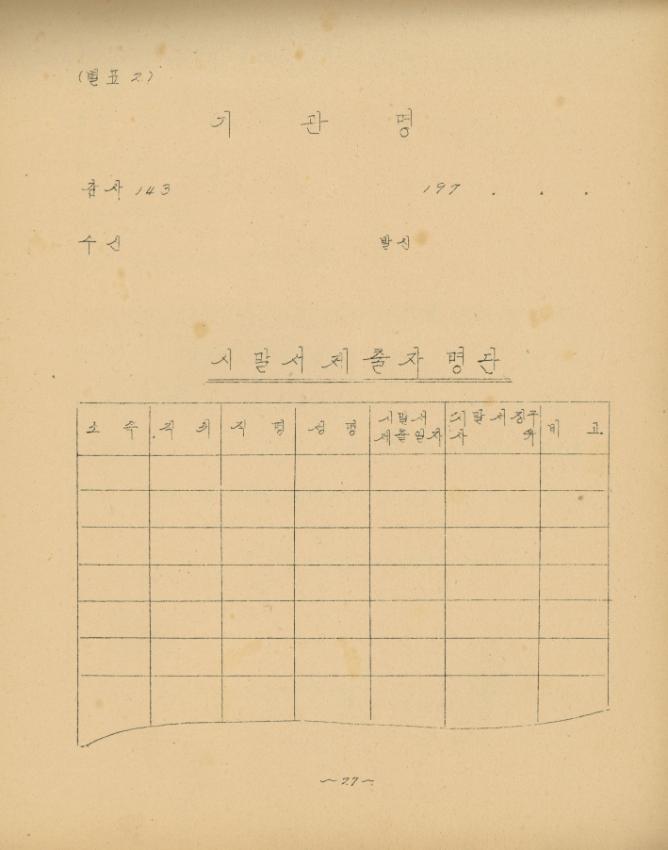 (별표 2)
기 관 명
감사 143 197 . . .
수신 발신
시말서제출자명단
소 속 직 위 직 명 성 명 시말서 제출일자 시말서징구 사 유 비 고
~27~